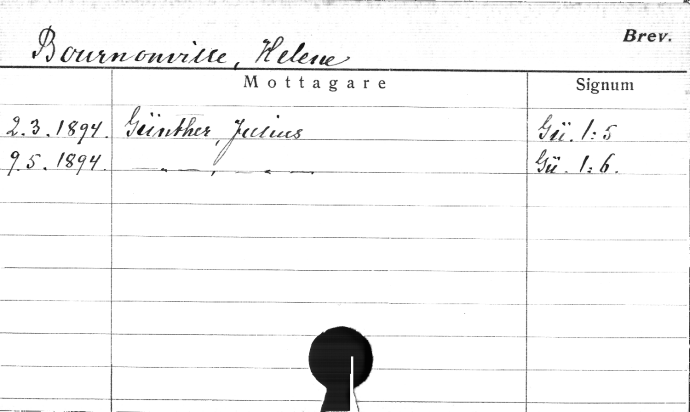 Brev.
Bournonville, Helene
Mottagare Signum
2.3.1894. Günther, Julius Gü. 1:5
9.5.1894. — " — , — " — Gü. 1:6.